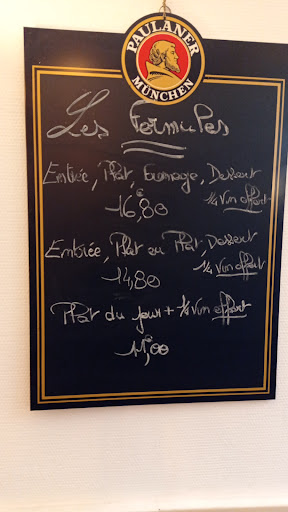 PAULANER
MÜNCHEN
Les Formules
Entrée, Plat, Fromage, Dessert
16€80
1/4 Vin offert
Entrée, Plat ou Plat, Dessert
1/4 Vin offert
14,80
Plat du jour + 1/4 Vin offert
11€,00